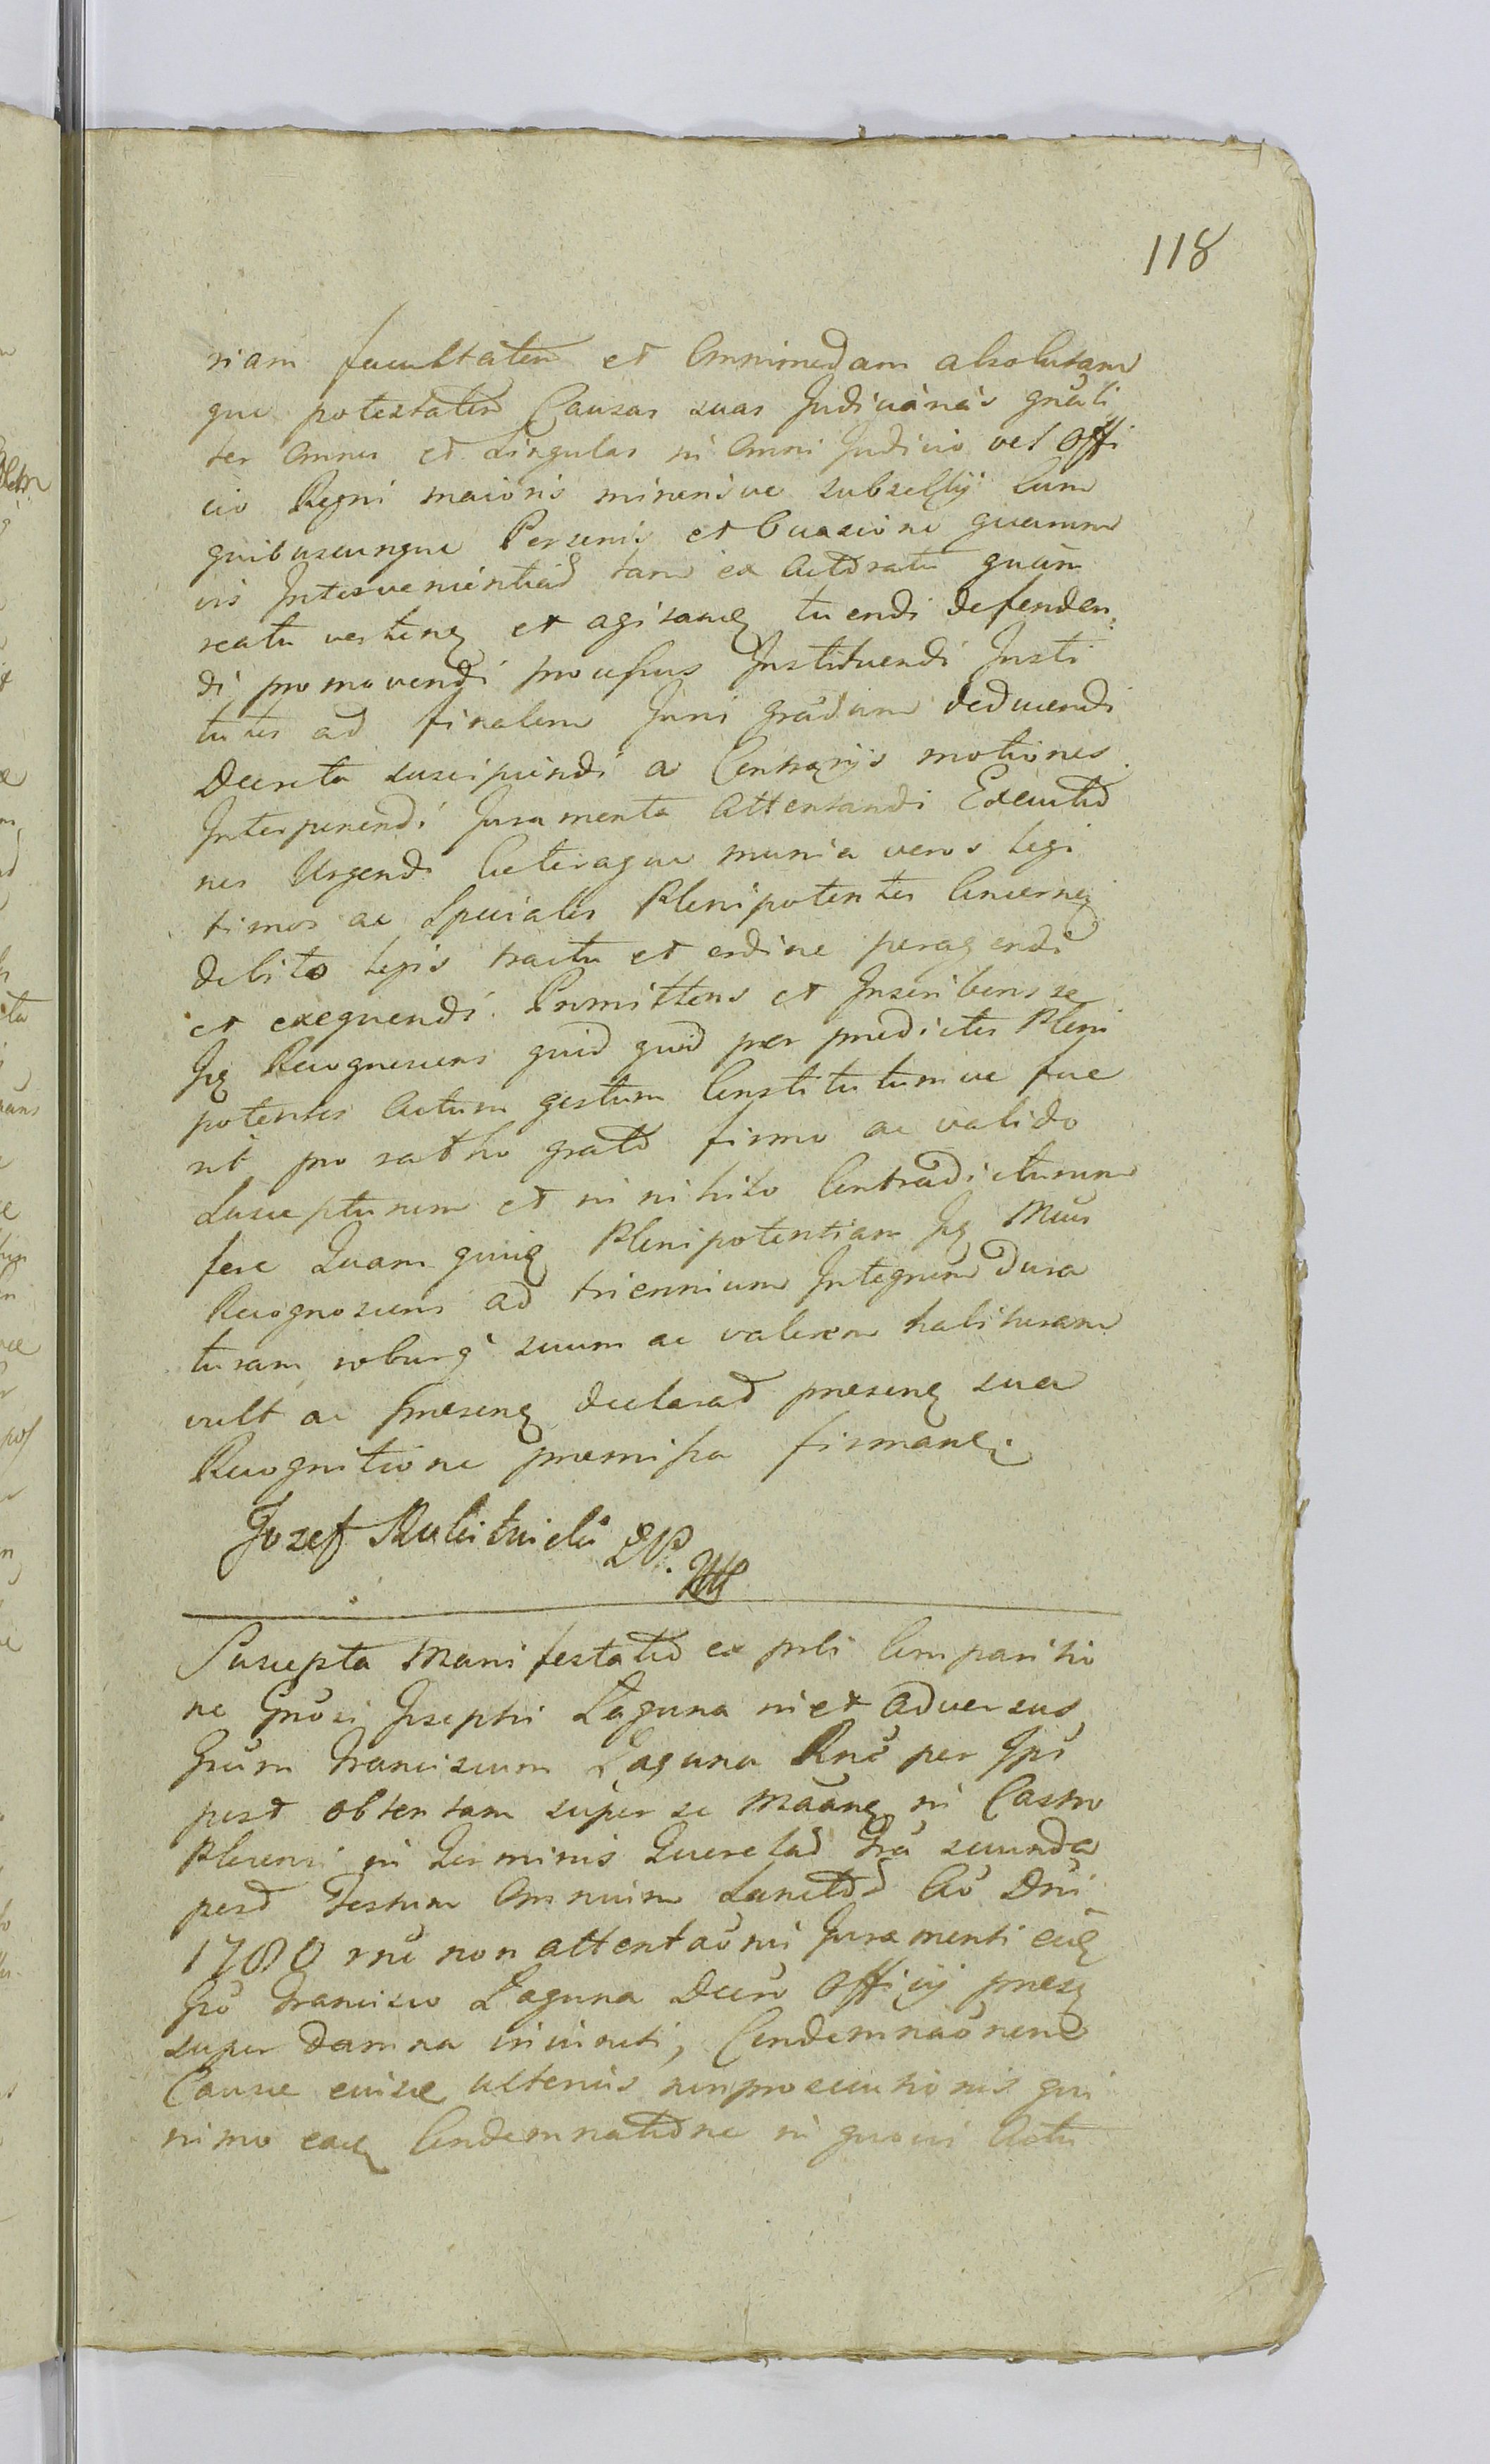 118
riam facultatem et Omnimodam absolutam
que potestatem Causas suas Judiciarias gnali
ter Omnes et Singulas in Omni Judicio vel Offi
cio Regni maioris minorisve subsellij Cum
quibuscunque Personis et Occasione quamm
vis Intervenientiad tam ex Actoratu quam
reatu verten et agitan tuendi defenden
di promovendi processus Instituendi Insti
tutos ad finalem Juris gradum deducendi
Decreta suscipiendi a Contrarijs motiones
Interponendi Juramenta Attentandi Executio
nes Urgendi Caeteraque munia veros legi
timos ac Speciales Plenipotentes Concernen
debito legis tractu et ordine peragendi
et exequendi. Promittens et Inscribens se
Recognoscens quid quid per predictos Pleni
potentes Actum gestum Constitutumve fue
rit pro ratho grato firmo ac valido
Suscepturum et in nihilo Contradicturum
fore Quam quid Plenipotentiam
Recognoscens ad triennium Integrum dura
turam, roburq suum ac valorem habituram
vult ac presen declarad presen sua
Recognitione premissa firman.
Jozef
Suscepta Manifestatio ex prli Comparitio
ne Gnosi Josephi Laguna niet adversus
Gnum Franciscum Laguna Rne per Ipsi
post obtentam super se in Castro
in Terminis Querelad fra secunda
post Festum Omnium Sanctod Ao Dni
1780 rne non attentaonis Juramenti
Francisco Laguna Decro Officij presen
super damna inivneti, Condemnaonem
Cause eiusve ulterius nonprosecutionis qui
nimo Condemnatione in quovis Actu